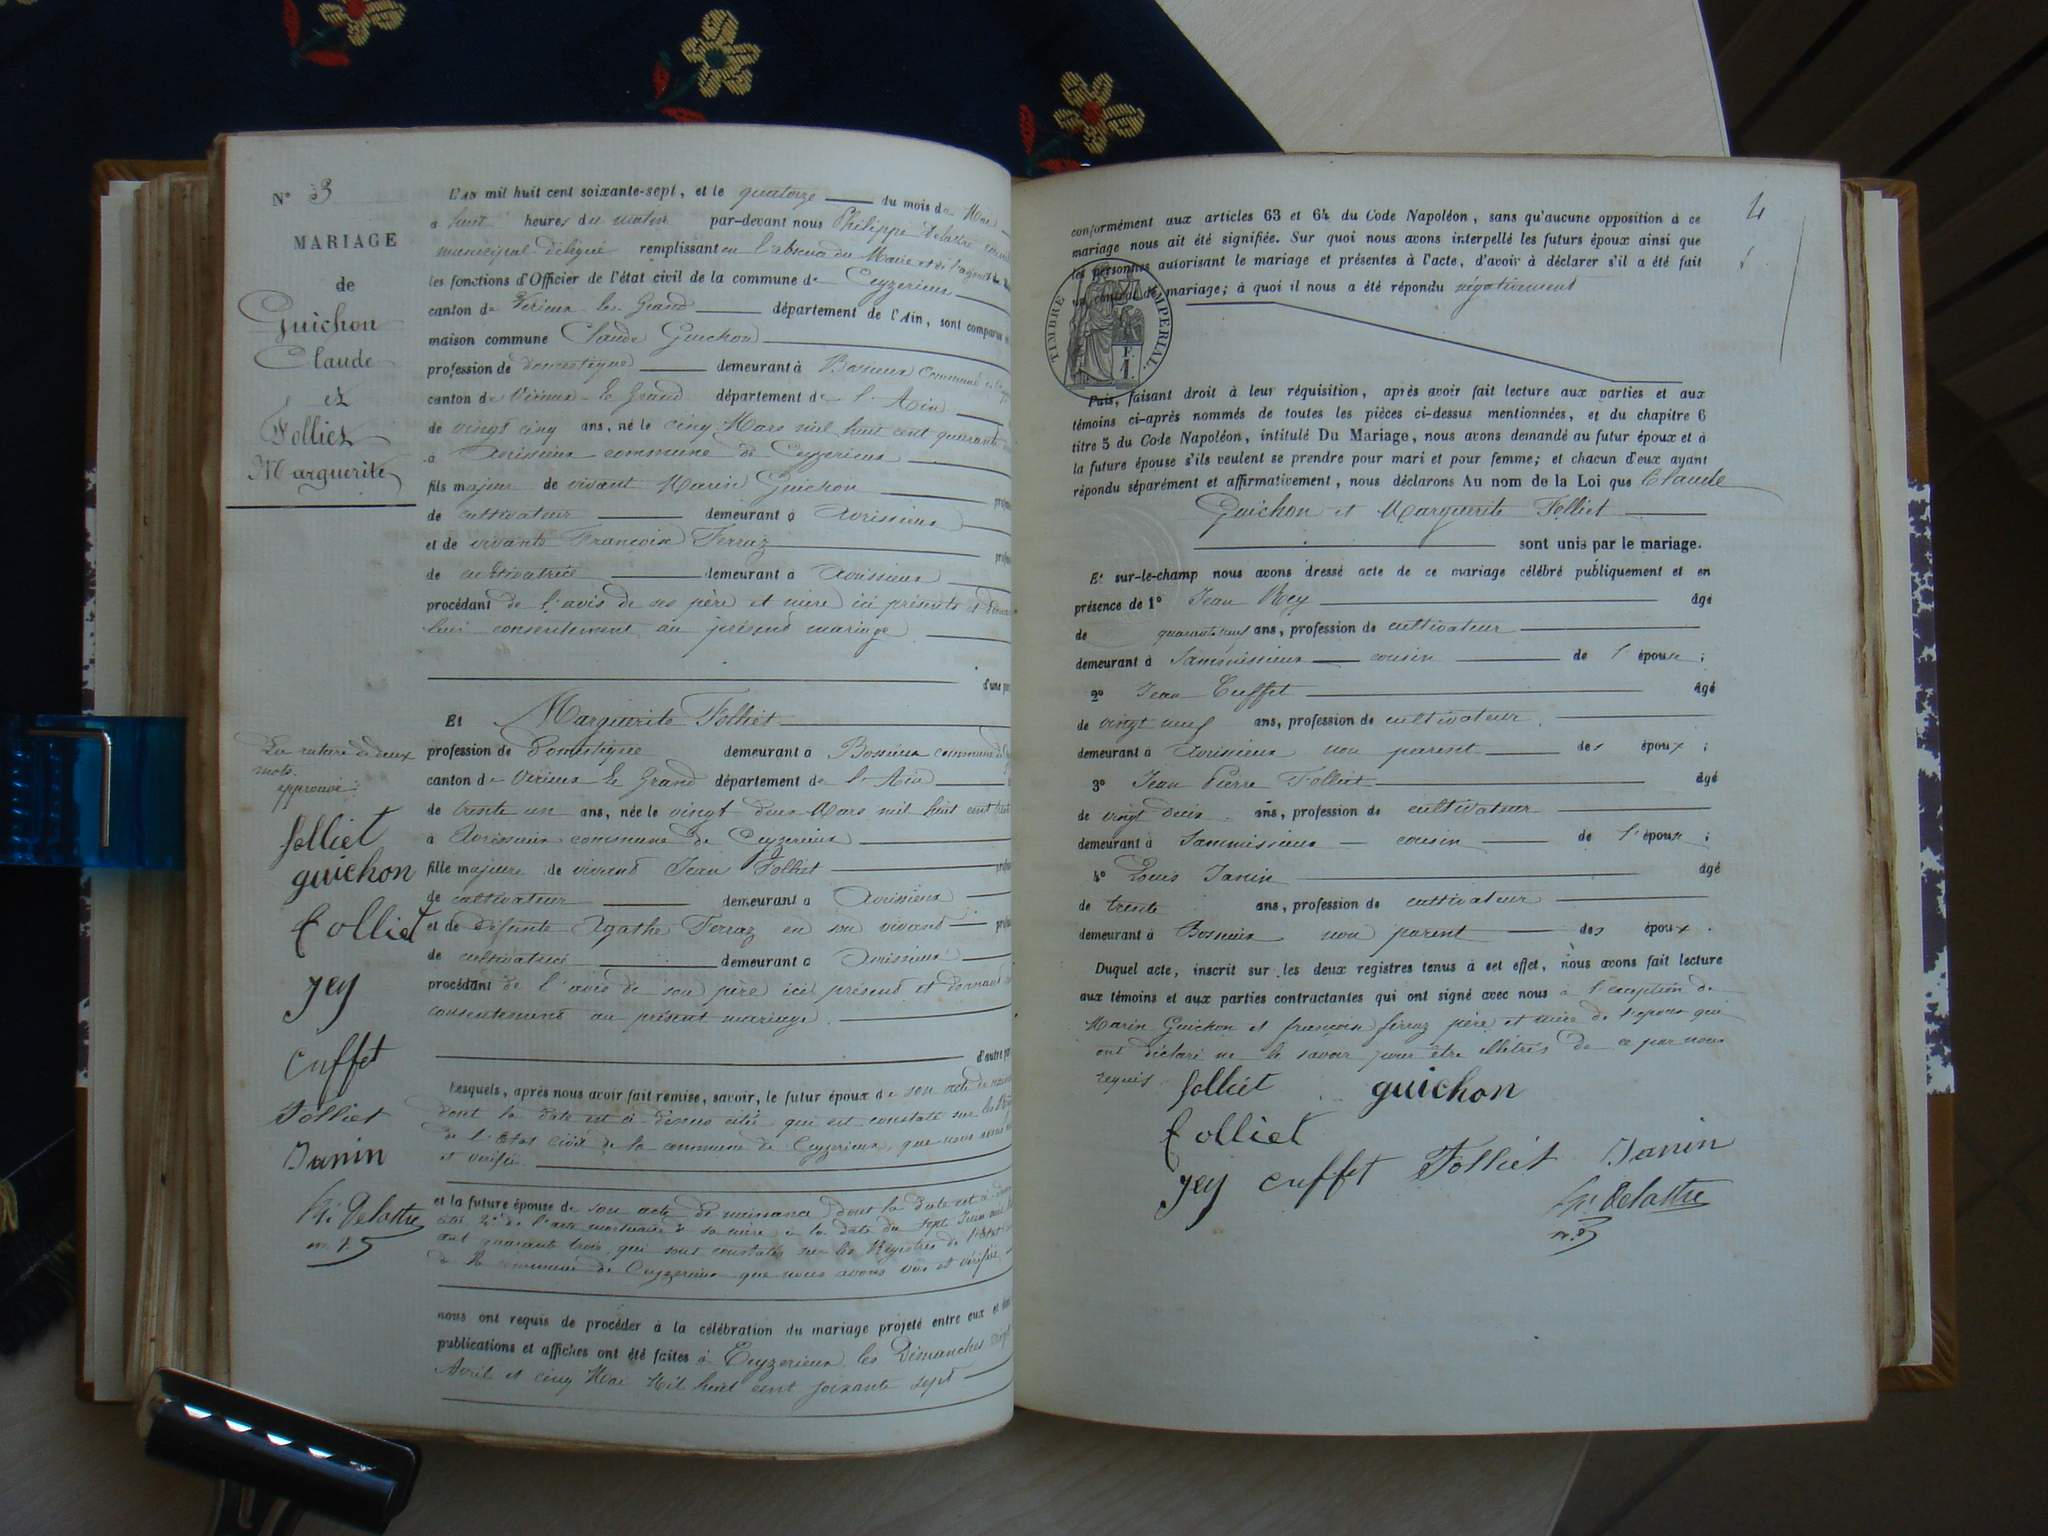 N° 3
MARIAGE
de
Guichon
Claude
et
Folliet
Marguerite
L'AN mil huit cent soixante-sept, et le quatorze du mois de Mai
à huit heures du matin par-devant nous Philippe Delastre
municipal délégué remplissant en l'absence du Maire et de l'adjoint
les fonctions d'Officier de l'état civil de la commune de Ceyzerieu
canton de Virieu le Grand département de l'Ain, sont comparus
maison commune Claude Guichon
profession de domestique demeurant à Bossieu commune
canton de Virieu le Grand département de l'Ain
de vingt cinq ans, né le cinq Mars mil huit cent quarante
à Avrissieu commune de Ceyzerieu
fils majeur de vivant Marin Guichon
de cultivateur demeurant à Avrissieu
et de vivante Françoise Ferraz
de cultivatrice demeurant à Avrissieu
procédant de l'avis de ses père et mère ici présents et
leur consentement au présent mariage
d'une par
Et Marguerite Folliet
profession de Domestique demeurant à Bossieu commune de
canton de Virieu le Grand département de l'Ain
de trente un ans, née le vingt deux Mars mil huit cent
à Avrissieu commune de Ceyzerieu
fille majeure de vivend Jean Folliet
de cultivateur demeurant à Avrissieu
et de défunte Agathe Ferraz en son vivant
de cultivatrice demeurant à Avrissieu
procédant de l'avis de son père ici présent et donnant
consentement au présent mariage
d'autre par
Lesquels, après nous avoir fait remise, savoir, le futur époux de son acte de
dont la date est ci dessus citée qui est constaté sur les
de l'Etat civil de la commune de Ceyzerieu, que nous
et vérifié
et la future épouse de son acte de naissance dont la date est ci
cité 2° de l'acte mortuaire de sa mère à la date du sept Juin mil
cent quarante trois qui sont constatés sur les Registres de l'Etat
de la commune de Ceyzerieu que nous avons vus et vérifiés
nous ont requis de procéder à la célébration du mariage projeté entre eux et
publications et affiches ont été faites à Ceyzerieu les Dimanches
Avril et cinq Mai Mil huit cent soixante sept
La rature de deux
mots
approuvé
folliet
guichon
folliet
rey
cuffet
Folliet
Janin
Ph. Delastre
4
conformément aux articles 63 et 64 du Code Napoléon, sans qu'aucune opposition à ce
mariage nous ait été signifiée. Sur quoi nous avons interpellé les futurs époux ainsi que
les personnes autorisant le mariage et présentes à l'acte, d'avoir à déclarer s'il a été fait
un contrat de mariage; à quoi il nous a été répondu négativement
TIMBRE IMPERIAL
F.
1.
Puis, faisant droit à leur réquisition, après avoir fait lecture aux parties et aux
témoins ci-après nommés de toutes les pièces ci-dessus mentionnées, et du chapitre 6
titre 5 du Code Napoléon, intitulé Du Mariage, nous avons demandé au futur époux et à
la future épouse s'ils veulent se prendre pour mari et pour femme; et chacun d'eux ayant
répondu séparément et affirmativement, nous déclarons Au nom de la Loi que Claude
Guichon et Marguerite Folliet
sont unis par le mariage.
Et sur-le-champ nous avons dressé acte de ce mariage célébré publiquement et en
présence de 1° Jean Rey âgé
de quarante neuf ans, profession de cultivateur
demeurant à Sammissieu cousin de l'épouse ;
2° Jean Cuffet âgé
de vingt neuf ans, profession de cultivateur
demeurant à Avrissieu non parent des époux ;
3° Jean Pierre Folliet âgé
de vingt deux ans, profession de cultivateur
demeurant à Sammissieu cousin de l'épouse ;
4° Louis Janin âgé
de trente ans, profession de cultivateur
demeurant à Bossieu non parent des époux.
Duquel acte, inscrit sur les deux registres tenus à cet effet, nous avons fait lecture
aux témoins et aux parties contractantes qui ont signé avec nous à l'exception de
Marin Guichon et françoise ferraz père et mère de l'époux qui
ont déclaré ne le savoir pour être illétrés de ce par nous
requis
folliet guichon
folliet
rey cuffet Folliet Janin
Ph. Delastre